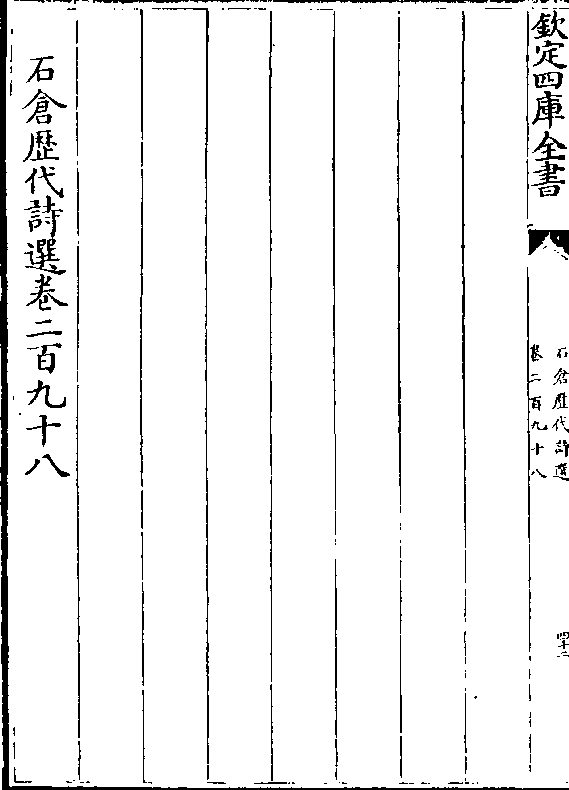 欽定四庫全書
石倉歷代詩選
卷二百九十八
四十二
石倉歷代詩選卷二百九十八